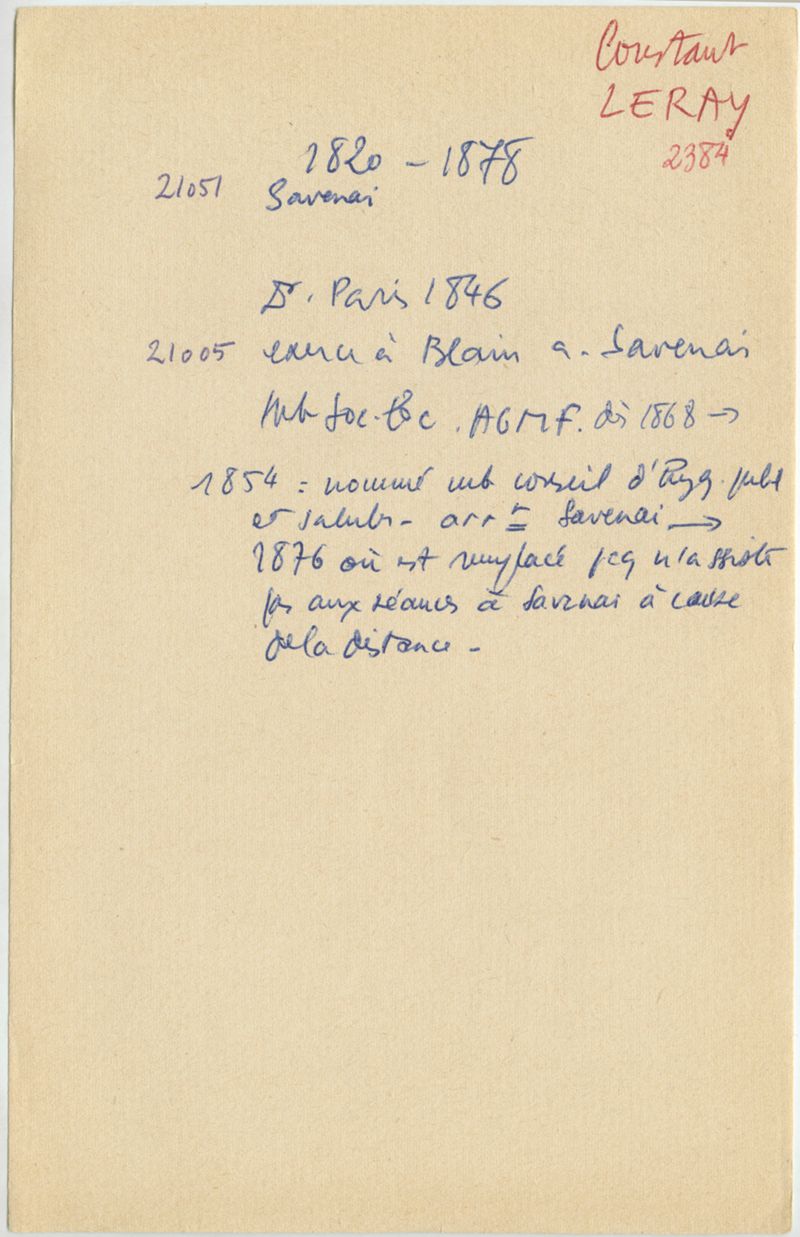 Constant
LERAY
2384
1820 - 1878
21051 Savenai
Dr. Paris 1846
21005 exerce à Blain a. Savenai
mb Soc. loc. AGMF. dès 1868 →
1854 = nommé mb conseil d'Hyg. publ
et salubr - arrt Savenai →
1876 où est remplacé pcq n'assiste
pas aux séances à Savenai à cause
de la distance -